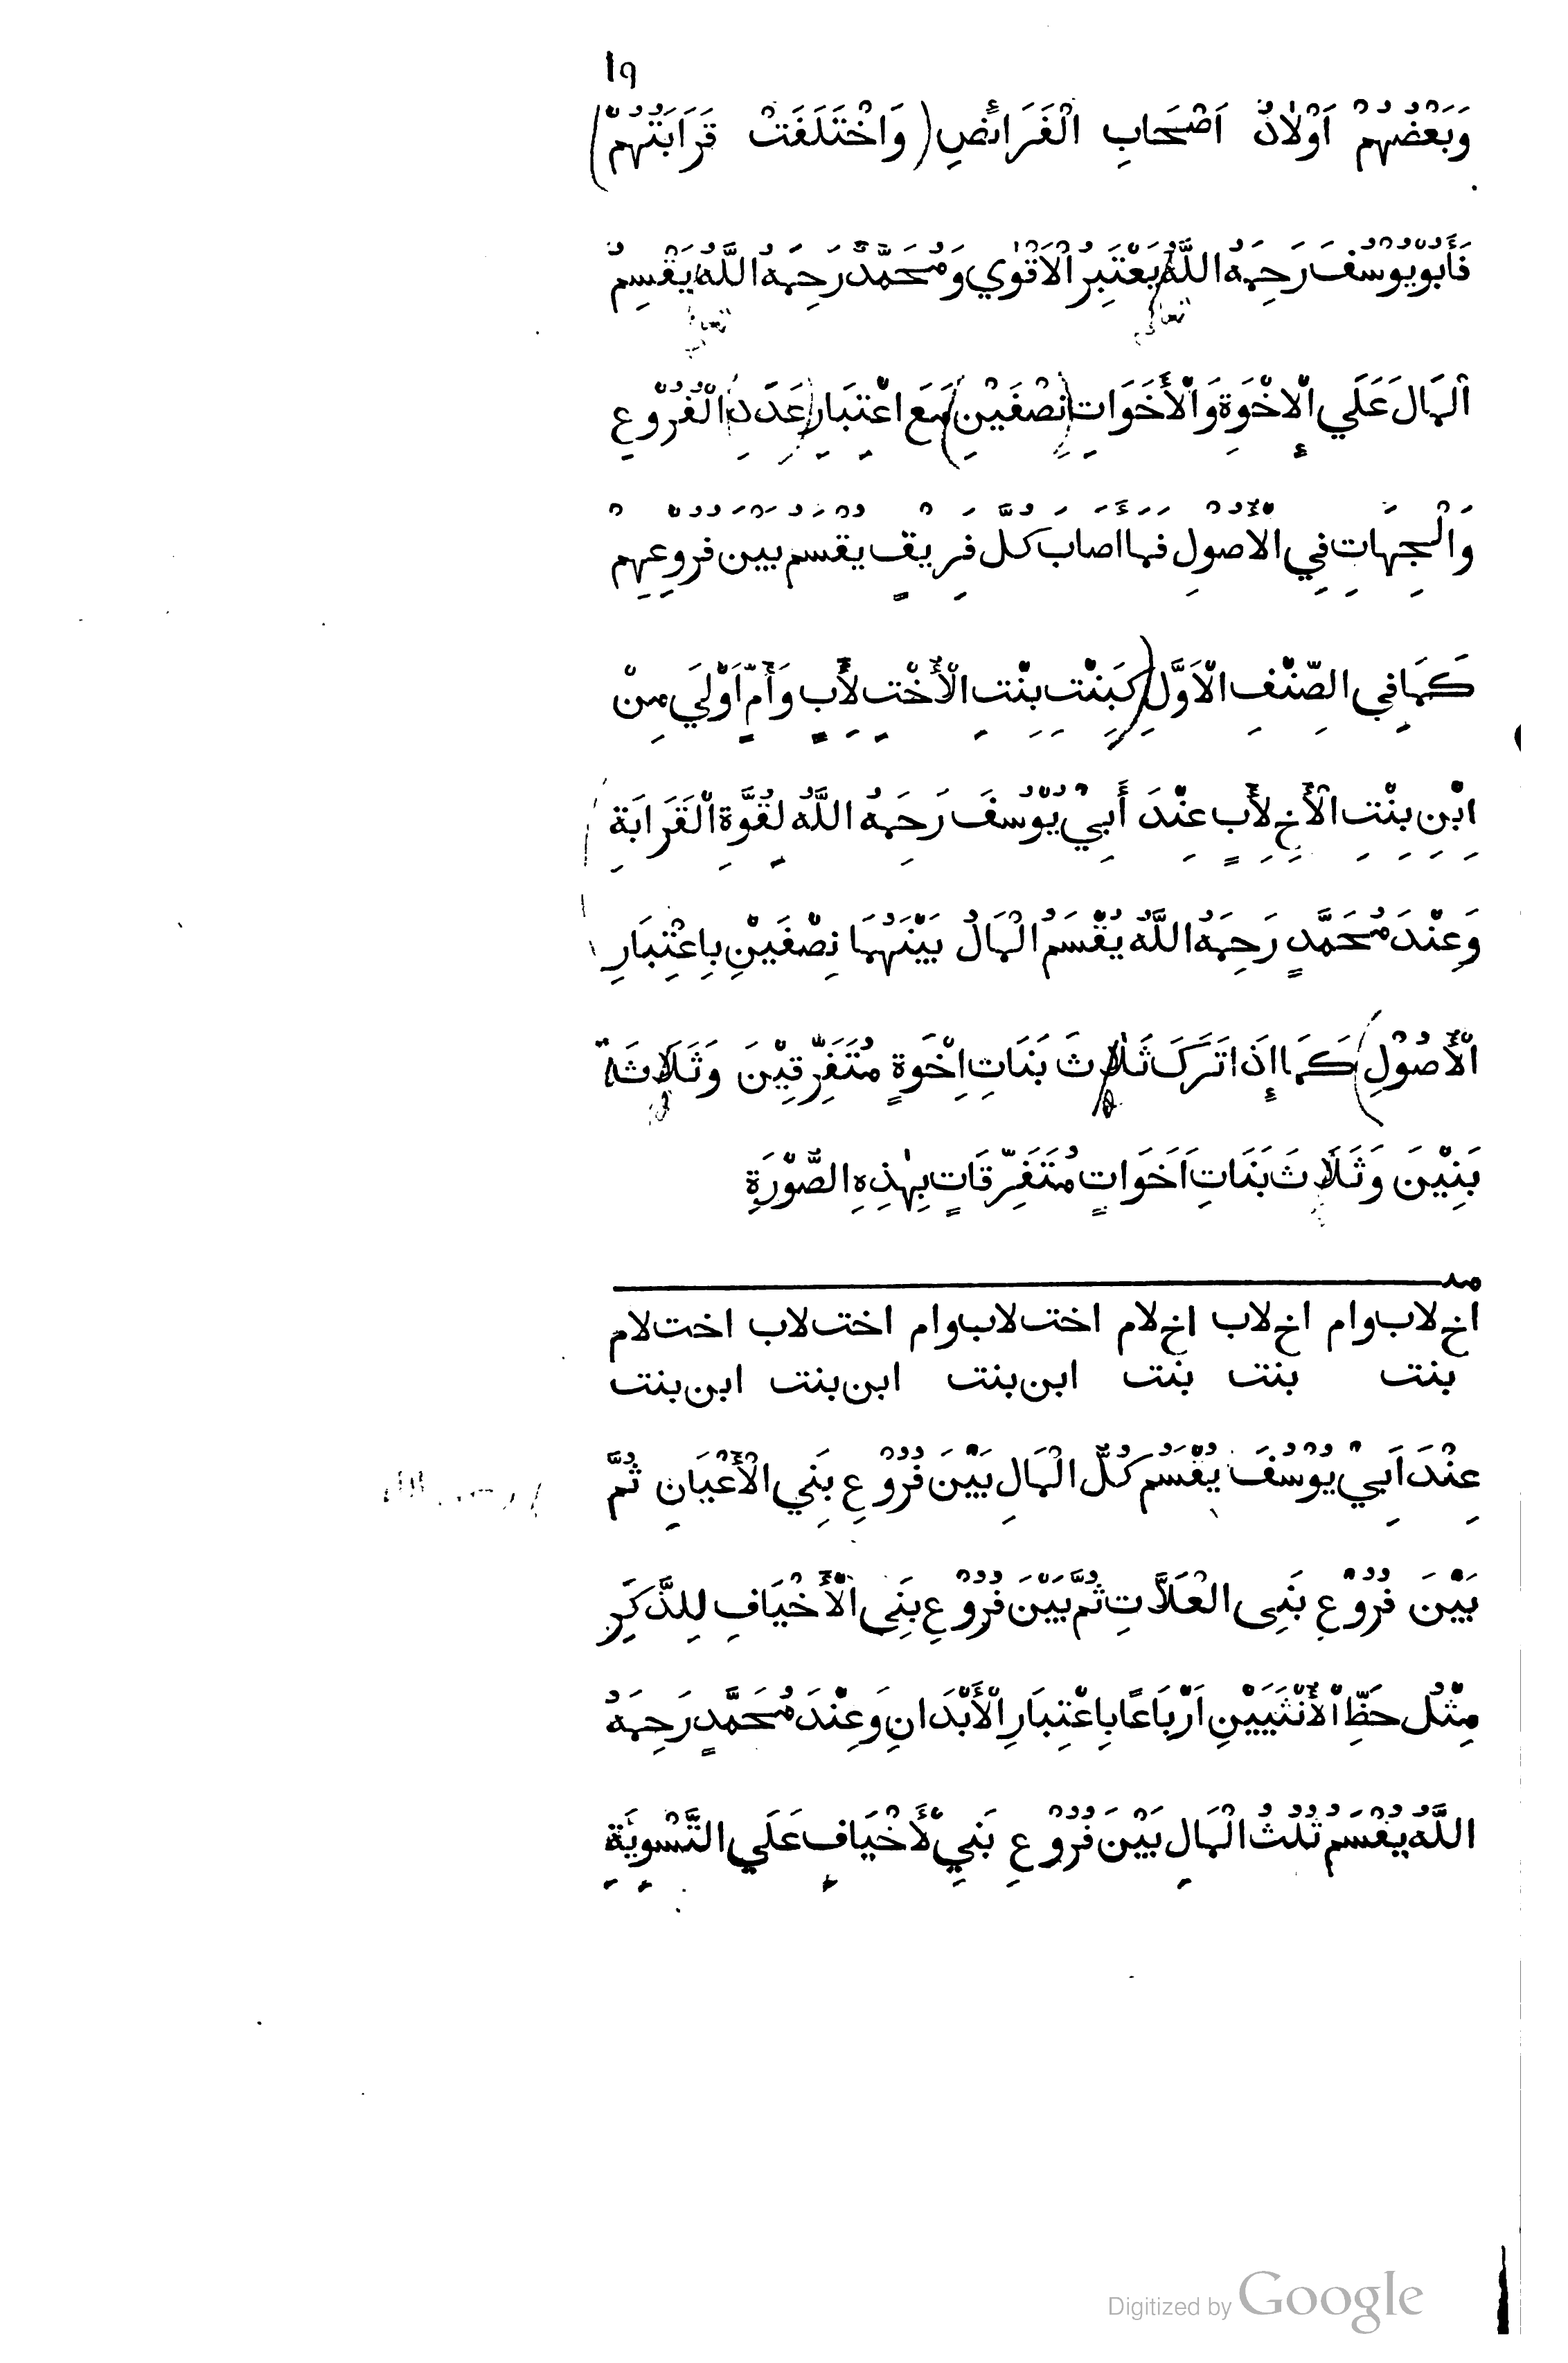 ١٩
وَبَعْضُهُمْ اَوْلَادُ اَصْحَابِ الْفَرَائِضِ (وَاخْتَلَفَتْ قَرَابَتُهُمْ)
فَأَبُو يُوْسُفَ رَحِمَهُ اللَّهُ يَعْتَبِرُ الْاَقْوٰي وَمُحَمَّدٌ رَحِمَهُ اللَّهُ يَقْسِمُ
الْمَالَ عَلَي الْإِخْوَةِ وَالْأَخَوَاتِ (نِصْفَيْنِ) مَعَ اعْتِبَارِ (عَدَدِ) الْفُرُوْعِ
وَالْجِهَاتِ فِي الْأُصُوْلِ فَمَا أَصَابَ كُلَّ فَرِيْقٍ يُقْسَمُ بَيْنَ فُرُوْعِهِمْ
كَمَا فِي الصِّنْفِ الْاَوَّلِ (كَبِنْتِ بِنْتِ الْأُخْتِ لِأَبٍ وَأُمٍّ اَوْلَي مِنْ
ابْنِ بِنْتِ الْأَخِ لِأَبٍ عِنْدَ أَبِيْ يُوْسُفَ رَحِمَهُ اللَّهُ لِقُوَّةِ الْقَرَابَةِ
وَعِنْدَ مُحَمَّدٍ رَحِمَهُ اللَّهُ يُقْسَمُ الْمَالُ بَيْنَهُمَا نِصْفَيْنِ بِاعْتِبَارِ
الْأُصُوْلِ) كَمَا إِذَا تَرَكَ ثَلٰاثَ بَنَاتِ اِخْوَةٍ مُتَفَرِّقِيْنَ وَثَلَاثَةَ
بَنِيْنَ وَثَلَاثَ بَنَاتِ اَخَوَاتٍ مُتَفَرِّقَاتٍ بِهٰذِهِ الصُّوْرَةِ
مد
اخ لاب وام اخ لاب اخ لام اخت لاب وام اخت لاب اخت لام
بنت بنت بنت ابن بنت ابن بنت ابن بنت
عِنْدَ اَبِيْ يُوْسُفَ يُقْسَمُ كُلُّ الْمَالِ بَيْنَ فُرُوْعِ بَنِي الْأَعْيَانِ ثُمَّ
بَيْنَ فُرُوْعِ بَنِى الْعَلَّاتِ ثُمَّ بَيْنَ فُرُوْعِ بَنِى الْأَخْيَافِ لِلذَّكَرِ
مِثْلُ حَظِّ الْأُنْثَيَيْنِ اَرْبَاعًا بِاعْتِبَارِ الْأَبْدَانِ وَعِنْدَ مُحَمَّدٍ رَحِمَهُ
اللَّهُ يُقْسَمُ ثُلُثُ الْمَالِ بَيْنَ فُرُوْعِ بَنِي لْأَخْيَافِ عَلَي التَّسْوِيَةِ
Digitized by Google